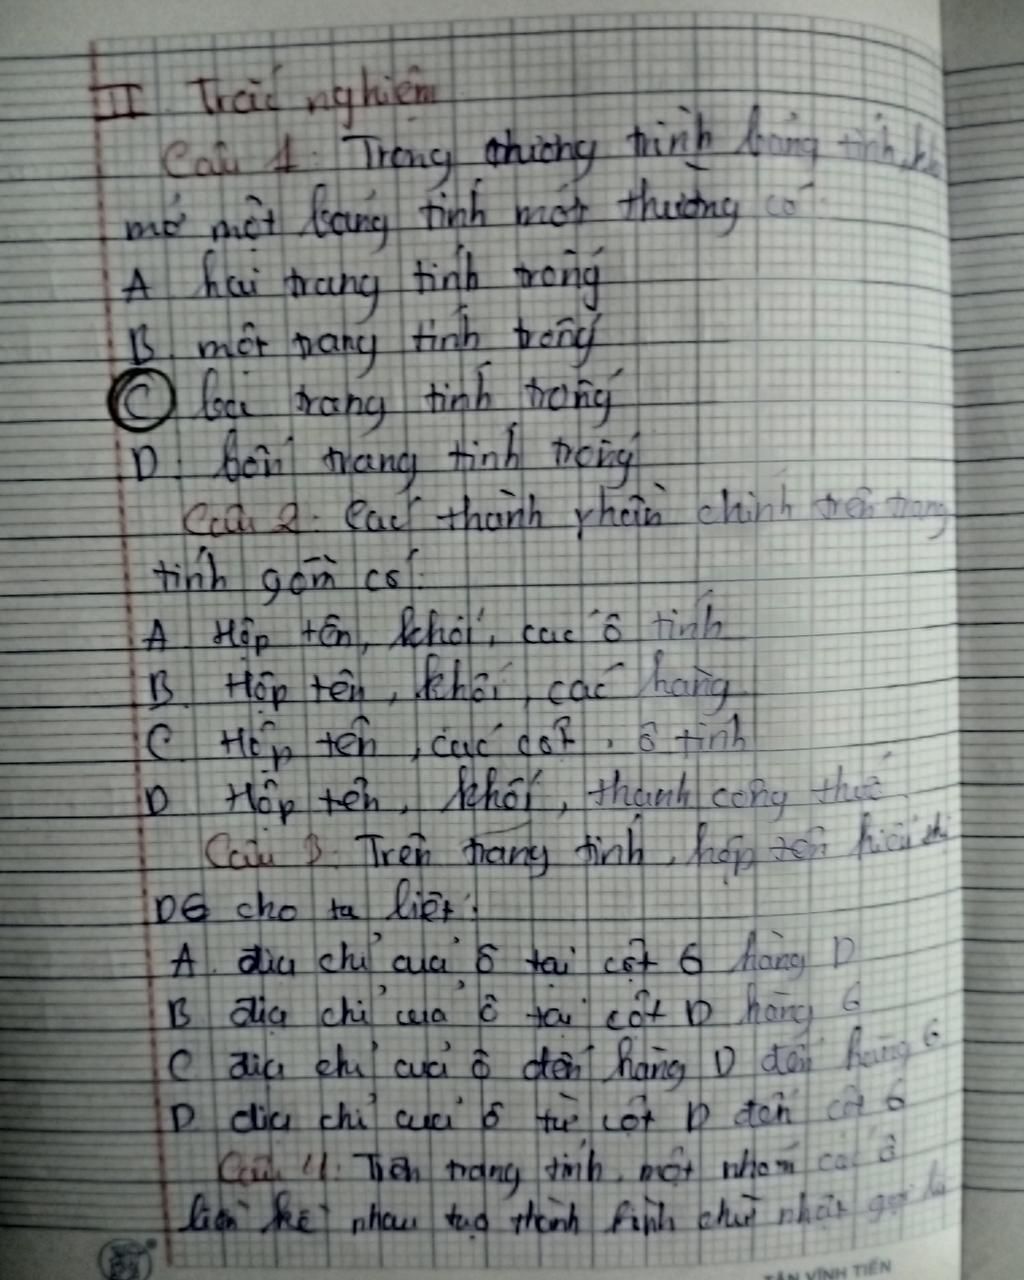 II Trắc nghiệm
Câu 1. Trong chương trình bảng tính, khi
mở một bảng tính mới thường có:
A hai trang tính trống
B. một trang tính trống
C trang tính trống
D. bốn trang tính trống
Câu 2. Các thành phần chính trên trang
tính gồm có:
A Hộp tên, khối, các ô tính
B. Hộp tên, khối, các hàng
C Hộp tên, các cột, ô tính
D Hộp tên, khối, thanh công thức
Câu 3. Trên trang tính, hộp tên hiển thị
D6 cho ta biết:
A. địa chỉ của ô tại cột 6 hàng D
B địa chỉ của ô tại cột D hàng 6
C địa chỉ của ô đến hàng D đến hàng 6
D địa chỉ của ô từ cột D đến cột 6
Câu 4. Trên trang tính, một nhóm các ô
liền kề nhau tạo thành hình chữ nhật gọi là
TÂN VĨNH TIẾN